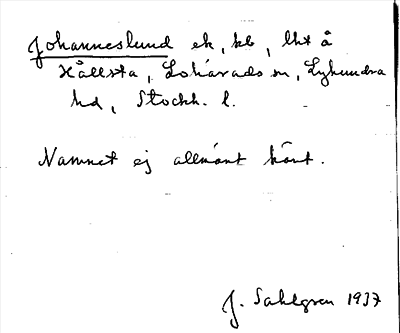 Johanneslund ek, kb, lht å
Hållsta, Lohärads sn, Lyhundra
hd, Stockh. l.
Namnet ej allmänt känt.
J. Sahlgren 1937